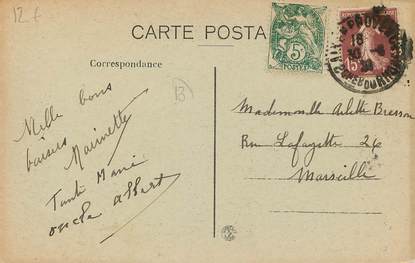 12 €
CARTE POSTA
Correspondance
B
Mille bons
baisers
Marinette
Tante Marie
oncle Albert
Mademoiselle Arlette Bresson
Rue Lafayette 26
Marseille
5
POSTES
15
18